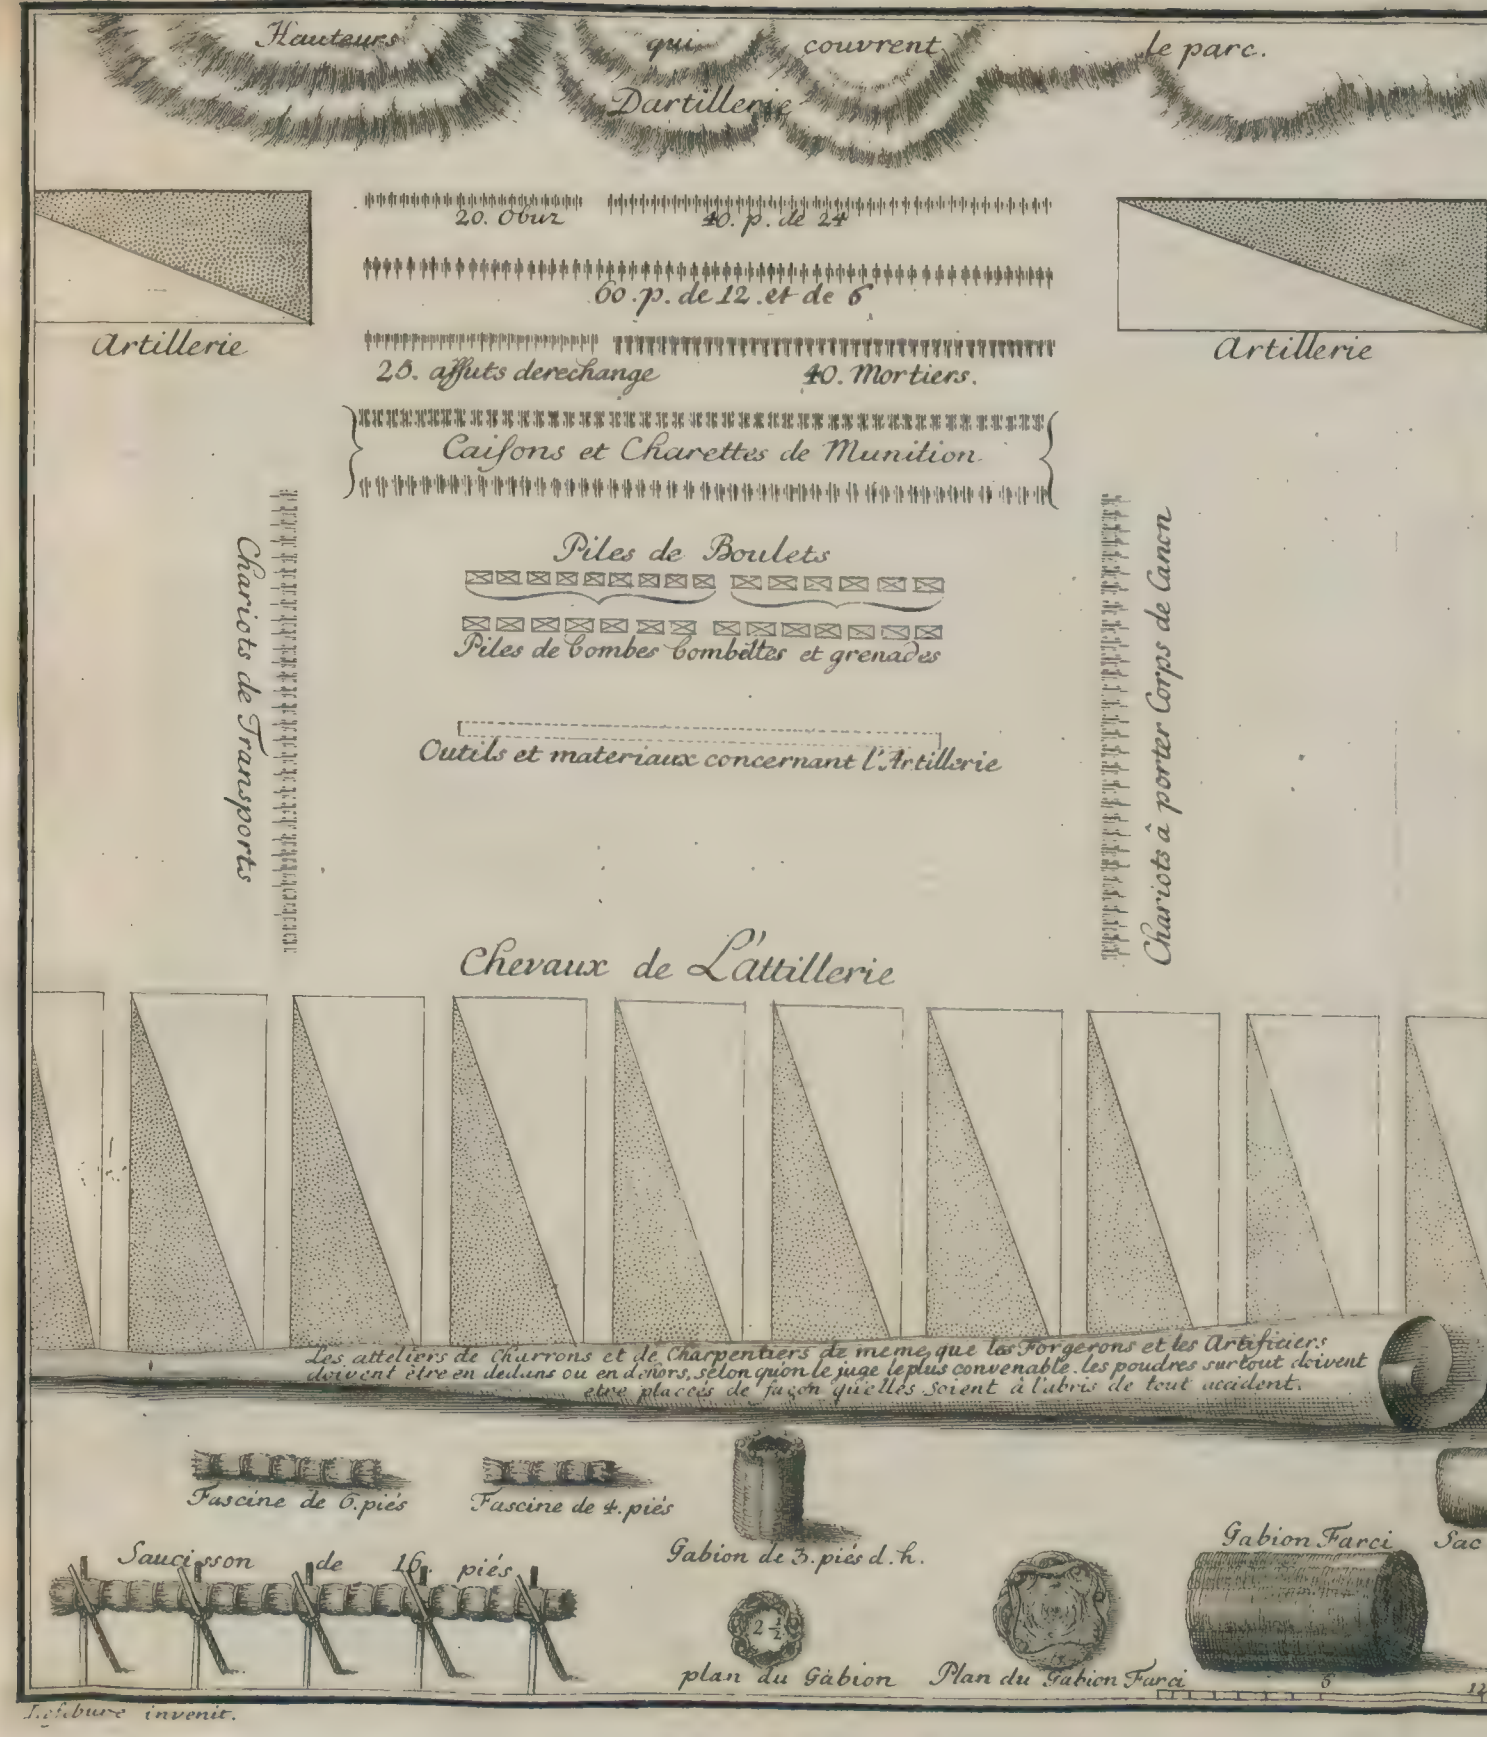 Hauteurs qui couvrent le parc.
Dartillerie
20. Obuz 40. p. de 24
60. p. de 12. et de 6
Artillerie
Artillerie
25. affuts derechange 40. Mortiers.
Caisons et Charettes de Munition
Chariots de Transports
Chariots â porter Corps de Canon
Piles de Boulets
Piles de bombes bombettes et grenades
Outils et materiaux concernant l'Artillerie
Chevaux de L'attillerie
Les atteliers de Charrons et de Charpentiers de meme, que les Forgerons et les Artificiers
doivent être en dedans ou en dehors, selon qu'on le juge le plus convenable. les poudres surtout doivent
etre placées de façon qu'elles soient à l'abris de tout accident.
Fascine de 6. piés
Fascine de 4. piés
Gabion de 3. piés d. h.
Gabion Farci
Sac
Saucisson de 16. piés
2 1/2
plan du Gabion
Plan du Gabion Farci
6 12
Lefebure invenit.